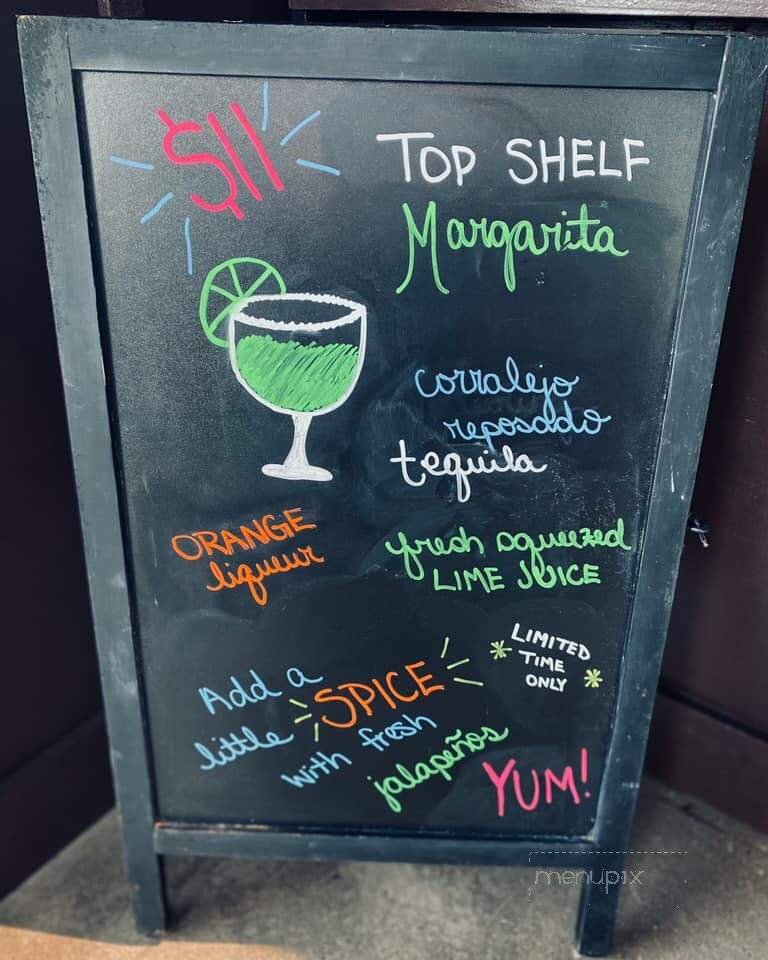 $11
TOP SHELF
Margarita
corralejo
reposado
tequila
ORANGE
liqueur
fresh squeezed
LIME JUICE
Add a
little SPICE
with fresh
jalapeños
*LIMITED
TIME
ONLY*
YUM!
menupix